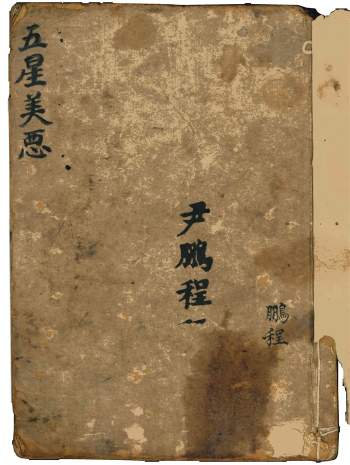 五星美惡
尹鵬程
鵬程